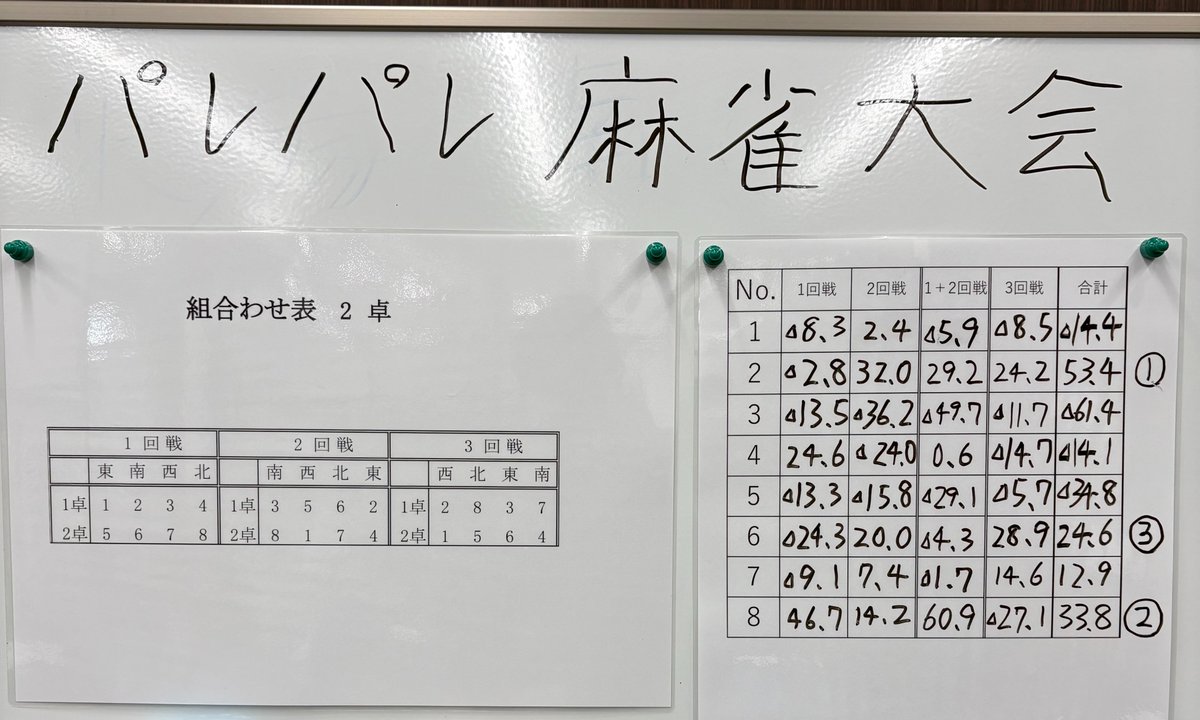 パレパレ 麻雀大会
組合わせ表 2 卓
1 回 戦 2 回 戦 3 回 戦
東 南 西 北 南 西 北 東 西 北 東 南
1卓 1 2 3 4 1卓 3 5 6 2 1卓 2 8 3 7
2卓 5 6 7 8 2卓 8 1 7 4 2卓 1 5 6 4
No. 1回戦 2回戦 1+2回戦 3回戦 合計
1 △8.3 2.4 △5.9 △8.5 △14.4
2 △2.8 32.0 29.2 24.2 53.4 ①
3 △13.5 △36.2 △49.7 △11.7 △61.4
4 24.6 △24.0 0.6 △14.7 △14.1
5 △13.3 △15.8 △29.1 △5.7 △34.8
6 △24.3 20.0 △4.3 28.9 24.6 ③
7 △9.1 7.4 △1.7 14.6 12.9
8 46.7 14.2 60.9 △27.1 33.8 ②